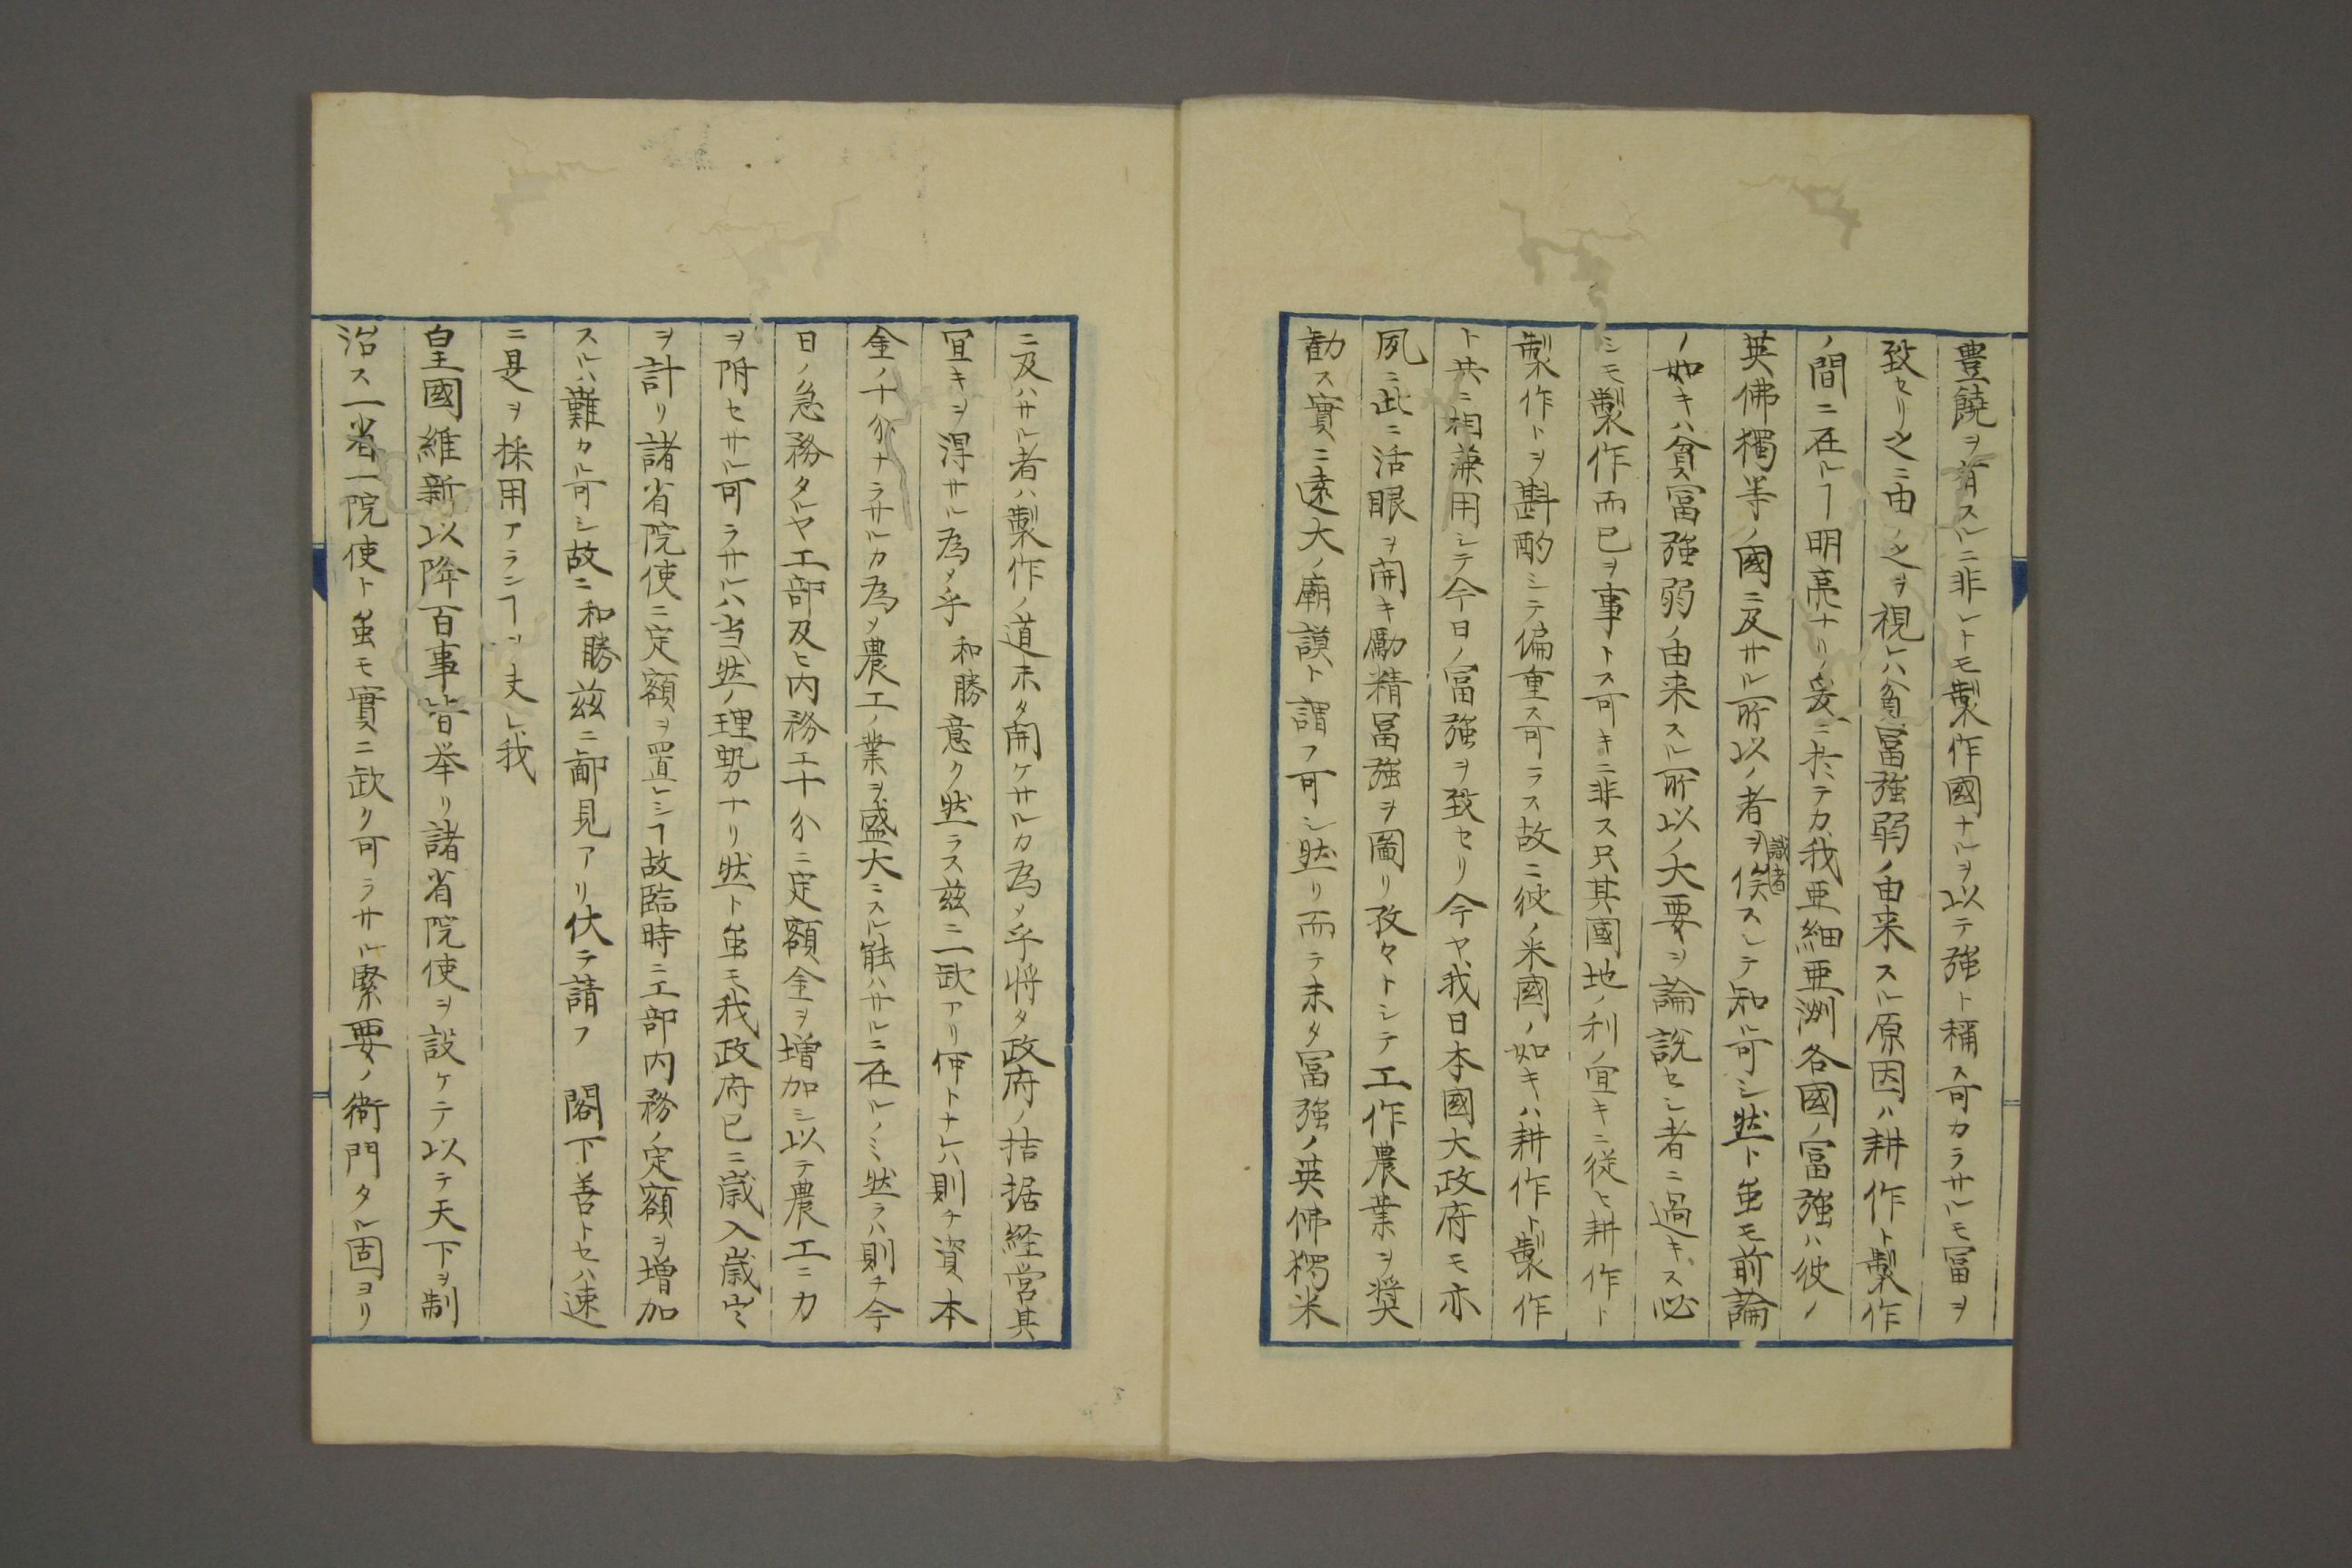 豊饒ヲ有スルニ非レトモ製作國ナルヲ以テ強ト稱ス可カラサルモ冨ヲ
致セリ之ニ由ノ之ヲ視レハ貧冨強弱ノ由来スル原因ハ耕作ト製作
ノ間ニ在ルヿ明亮ナリ爰ニ於テカ我亜細亜洲各國ノ冨強ハ彼ノ
英佛獨等ノ國ニ及サル所以ノ者ヲ識者俟スレテ知ル可シ然ト虽モ前論
ノ如キハ貧冨強弱ノ由来スル所以ノ大要ヲ論説セシ者ニ過キス必
シモ製作而已ヲ事トス可キニ非ス只其國地ノ利ノ宜キニ従ヒ耕作ト
製作トヲ斟酌シテ偏重ス可ラス故ニ彼ノ米國ノ如キハ耕作ト製作
ト共ニ相兼用シテ今日ノ冨強ヲ致セリ今ヤ我日本國大政府モ亦
夙ニ此ニ活眼ヲ開キ勵精冨強ヲ圖リ孜々トシテ工作農業ヲ奨
勧ス實ニ遠大ノ廟謨ト謂フ可シ然リ而テ未タ冨強ノ英佛獨米
ニ及ハサル者ハ製作ノ道未タ開ケサルカ為メ乎将タ政府ノ拮据経営其
宜キヲ淂サル為メ乎和勝意ク然ラス茲ニ二欵アリ何トナレハ則チ資本
金ノ十分ナラサルカ為メ農工ノ業ヲ盛大ニスル能ハサルニ在ルノミ然ラハ則チ今
日ノ急務タルヤ工部及ヒ内務エ十分ニ定額金ヲ増加シ以テ農工ニ力
ヲ附セサル可ラサルハ当然ノ理勢ナリ然ト虽モ我政府已ニ歳入歳出
ヲ計リ諸省院使ニ定額ヲ置レシヿ故臨時ニ工部内務ノ定額ヲ増加
スルハ難カル可シ故ニ和勝茲ニ鄙見アリ伏テ請フ　閣下善トセハ速
ニ是ヲ採用アランヿヲ夫レ我
皇國維新以降百事皆挙リ諸省院使ヲ設ケテ以テ天下ヲ制
治ス一省一院使ト虽モ實ニ欵ク可ラサル緊要ノ衙門タル固ヨリ